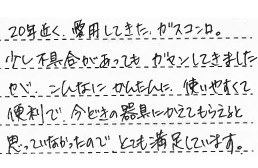 20年近く、愛用してきた、ガスコンロ。
少し不具合があっても ガマンしてきました
が、こんなに かんたんに、使いやすくて
便利で、今どきの器具にかえてもらえると
思っていなかったので、とても満足しています。